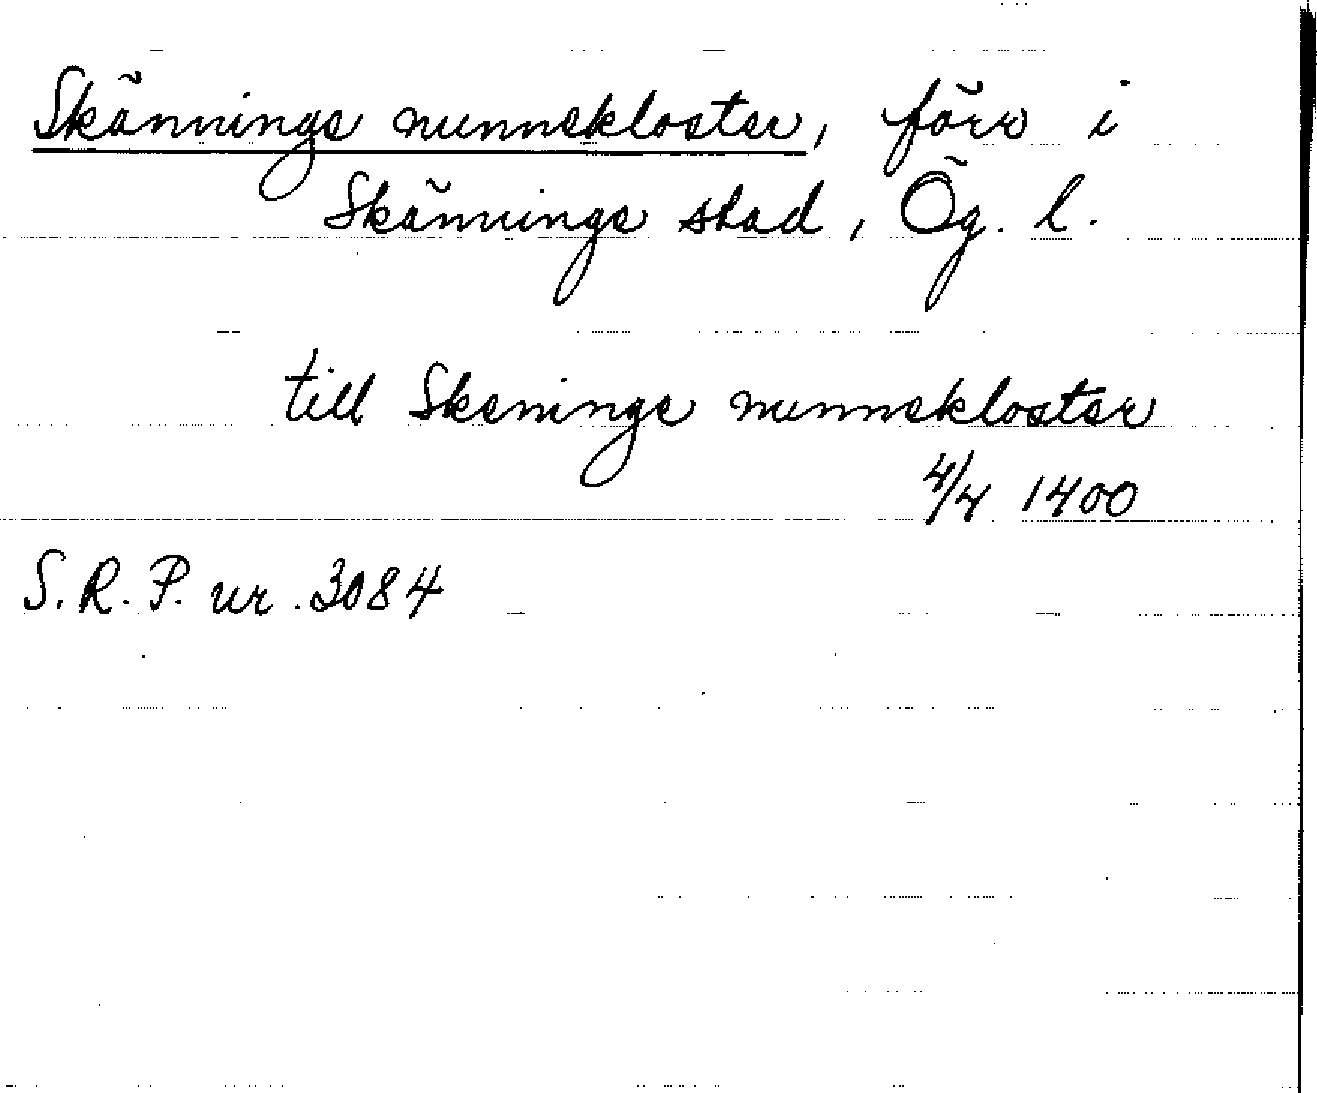 Skännings nunnekloster, förr i
Skännings stad, Ög. l.
till Skenings nunnekloster
4/4 1400
S.R.P. nr. 3084